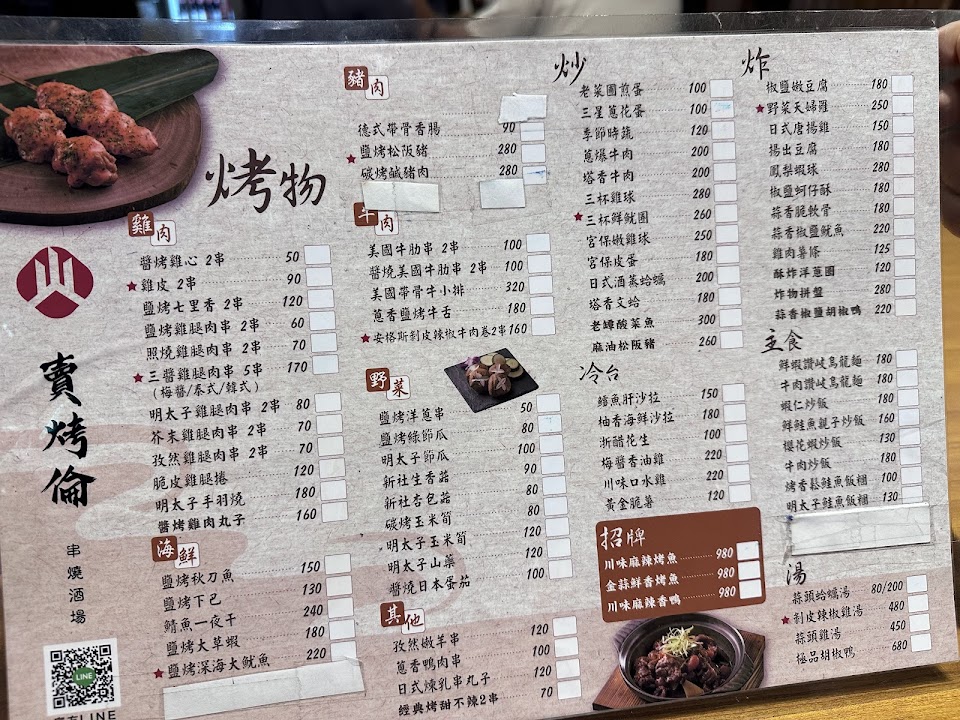 賣烤倫
串燒酒場
LINE
烤物
雞肉
醬烤雞心 2串 50
★雞皮 2串 90
鹽烤七里香 2串 120
鹽烤雞腿肉串 2串 60
照燒雞腿肉串 2串 70
★三醬雞腿肉串 5串 170
(梅醬/泰式/韓式)
明太子雞腿肉串 2串 80
芥末雞腿肉串 2串 70
孜然雞腿肉串 2串 70
脆皮雞腿捲 120
明太子手羽燒 180
醬烤雞肉丸子 160
海鮮
鹽烤秋刀魚 150
鹽烤下巴 130
鯖魚一夜干 240
鹽烤大草蝦 180
★鹽烤深海大魷魚 220
豬肉
德式帶骨香腸 90
★鹽烤松阪豬 280
碳烤鹹豬肉 280
牛肉
美國牛肋串 2串 100
醬燒美國牛肋串 2串 120
美國帶骨牛小排 320
蔥香鹽烤牛舌 180
★安格斯剝皮辣椒牛肉卷2串 160
野菜
鹽烤洋蔥串 50
鹽烤綠節瓜 80
明太子節瓜 100
新社生香菇 80
新社杏包菇 80
碳烤玉米筍 80
明太子玉米筍 120
明太子山藥 120
醬燒日本蛋茄 100
其他
孜然嫩羊串 120
蔥香鴨肉串 100
日式煉乳串丸子 120
經典烤甜不辣2串 70
炒
老菜圃煎蛋 100
三星蔥花蛋 100
季節時蔬 100
蔥爆牛肉 200
塔香牛肉 200
三杯雞球 280
★三杯鮮魷圈 260
宮保嫩雞球 250
宮保皮蛋 180
日式酒蒸蛤蠣 200
塔香文蛤 180
老罈酸菜魚 300
麻油松阪豬 260
冷台
鱈魚肝沙拉 150
柚香海鮮沙拉 180
浙醋花生 100
梅醬香油雞 220
川味口水雞 220
黃金脆薯 120
招牌
川味麻辣烤魚 980
金蒜鮮香烤魚 980
川味麻辣香鴨 980
炸
椒鹽嫩豆腐 180
★野菜天婦羅 250
日式唐揚雞 150
揚出豆腐 180
鳳梨蝦球 280
椒鹽蚵仔酥 180
蒜香脆軟骨 180
蒜香椒鹽魷魚 220
雞肉薯條 125
酥炸洋蔥圈 120
炸物拼盤 280
蒜香椒鹽胡椒鴨 220
主食
鮮蝦讚岐烏龍麵 180
牛肉讚岐烏龍麵 180
蝦仁炒飯 180
鮮鮭魚親子炒飯 160
櫻花蝦炒飯 130
牛肉炒飯 180
烤香鬆鮭魚飯糰 100
明太子鮭魚飯糰 130
湯
蒜頭蛤蠣湯 80/200
★剝皮辣椒雞湯 480
蒜頭雞湯 450
極品胡椒鴨 680